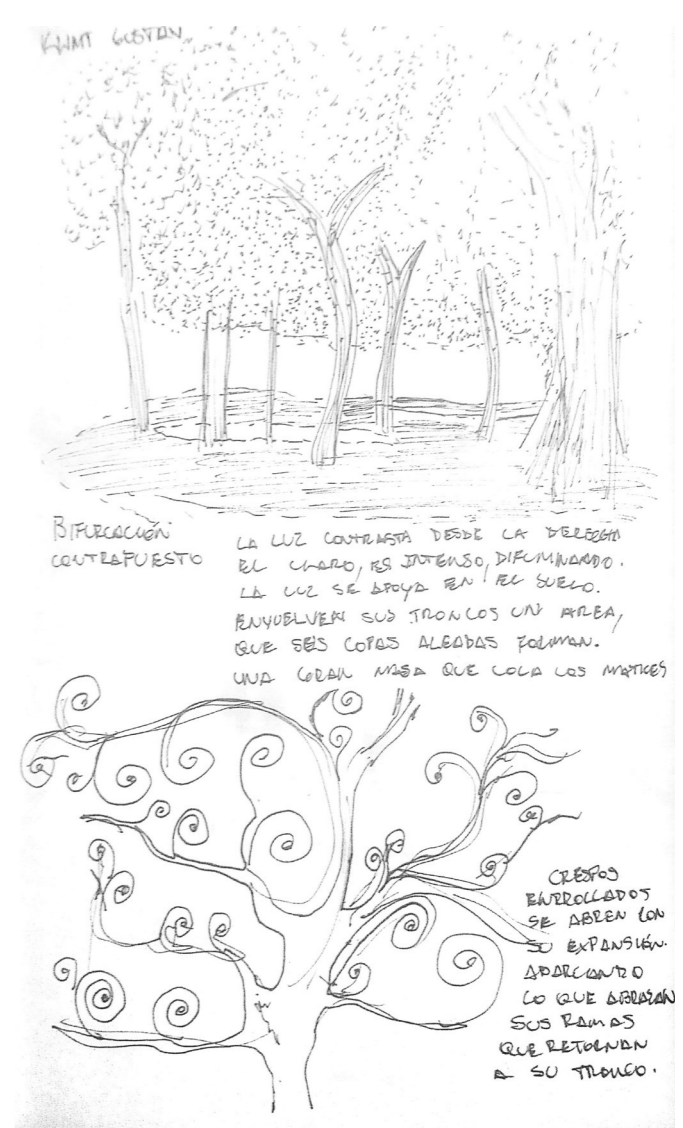 KLIMT GUSTAV
BIFURCACIÓN
CONTRAPUESTO
LA LUZ CONTRASTA DESDE LA DERECHA
EL CLARO, ES INTENSO, DIFUMINANDO.
LA LUZ SE APOYA EN EL SUELO.
ENVUELVEN SUS TRONCOS UN AREA,
QUE SUS COPAS ALEADAS FORMAN.
UNA GRAN MASA QUE COLA LOS MATICES
CRESPOS
ENRROLLADOS
SE ABREN CON
SU EXPANSIÓN.
ABARCANDO
LO QUE ABRAZAN
SUS RAMAS
QUE RETORNAN
A SU TRONCO.